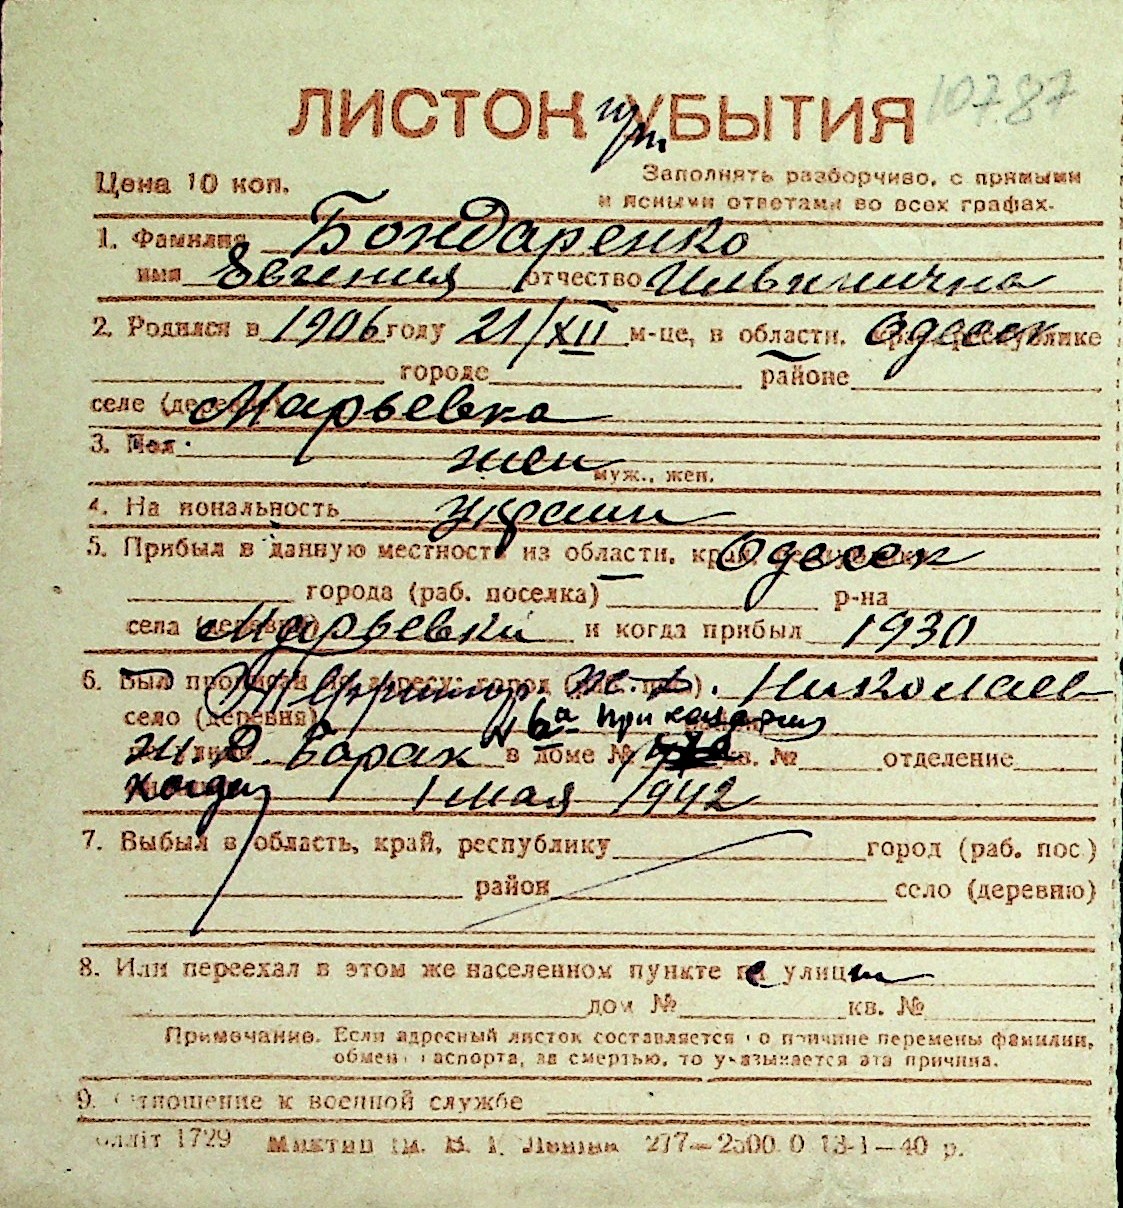 10787
ЛИСТОК при УБЫТИЯ
Цена 10 коп.
Заполнять разборчиво, с прямыми
и ясными ответами во всех графах.
1. Фамилия Бондаренко
имя Евгения отчество Ильинична
2. Родился в 1906 году 21/XII м-це, в области, Одесск
городе районе
селе (деревне) Марьевка
3. Пол жен
муж., жен.
4. Национальность украин
5. Прибыл в данную местность из области, края, Одесск
города (раб. поселка) р-на
села Марьевки и когда прибыл 1930
6. Был прописан по адресу: город Территор. ж-д. Николаев
село (деревня) 6а при канцелярии
ж.д. Барак в доме № кв. № отделение
когда 1 мая 1942
7. Выбыл в область, край, республику город (раб. пос.)
район село (деревню)
8. Или переехал в этом же населенном пункте не улиц
дом № кв. №
Примечание. Если адресный листок составляется по причине перемены фамилии,
обмена паспорта, за смертью, то указывается эта причина.
9. Отношение к военной службе
1729 Миктип ім. В. І. Леніна 277—2500.0 13-I—40 р.